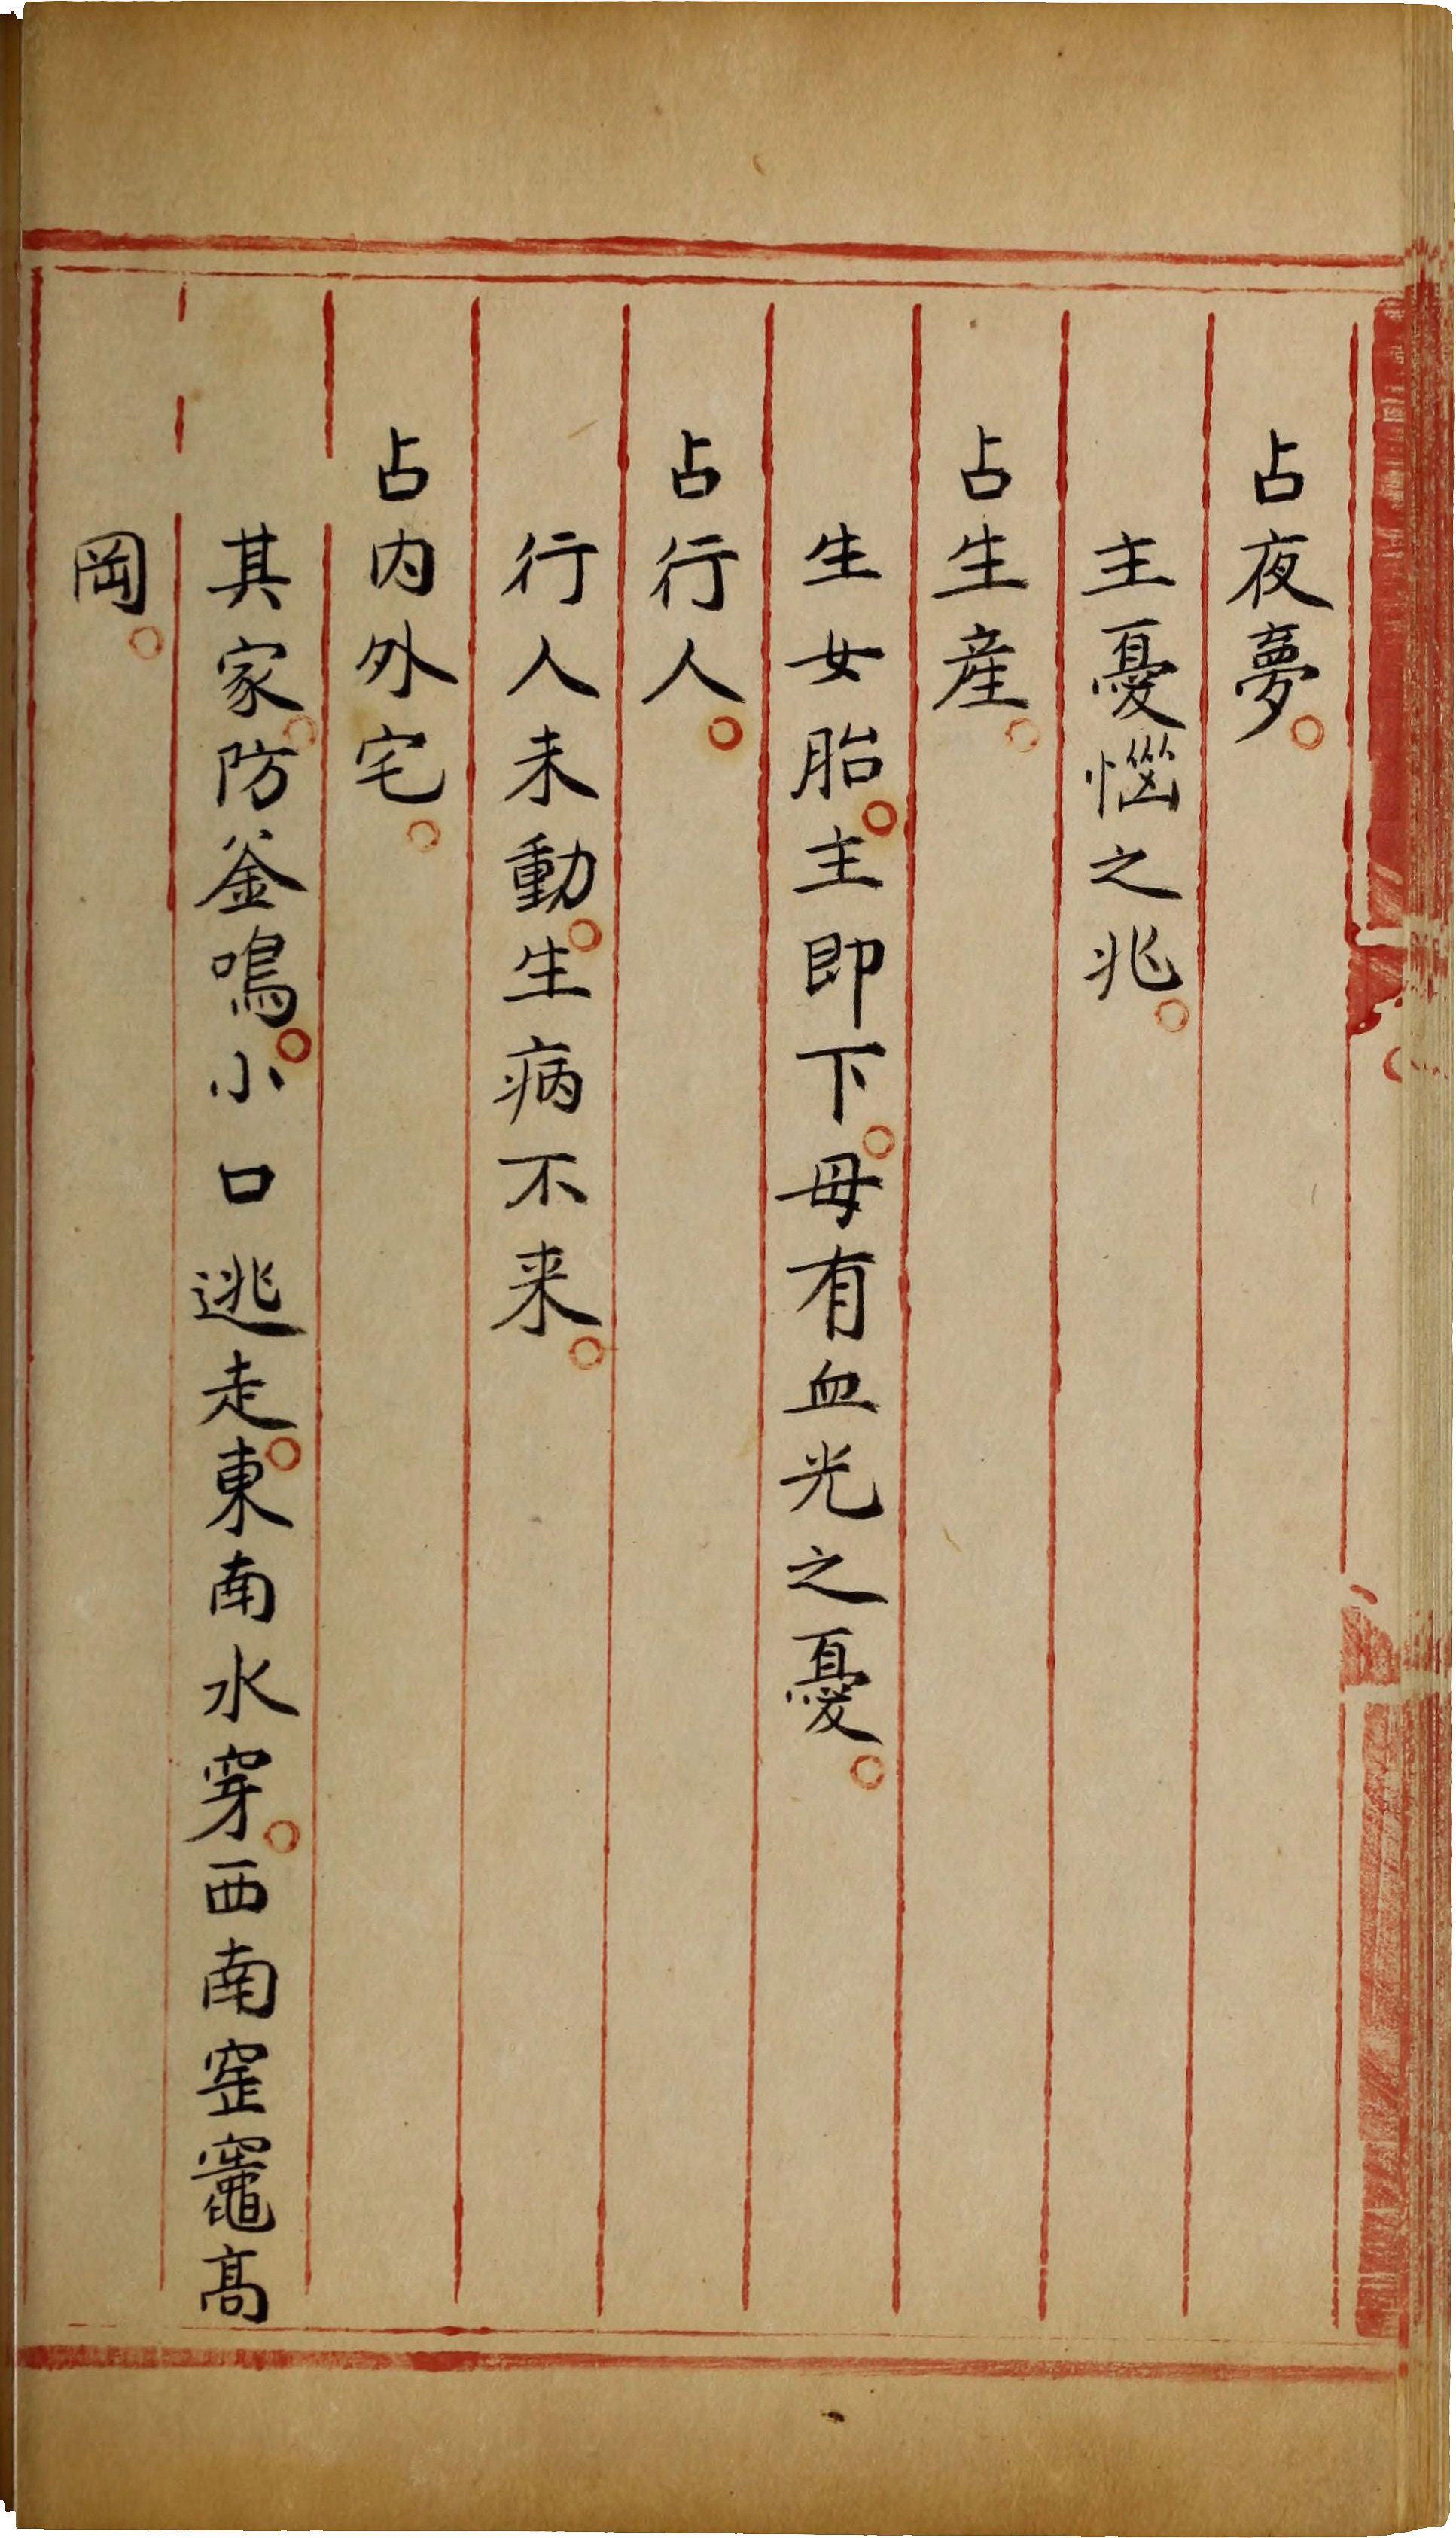 占夜夢。
主憂惱之兆。
占生産。
生女胎。主即下。母有血光之憂。
占行人。
行人未動。生病不来。
占内外宅。
其家。防釜鳴。小口逃走。東南水穿。西南窰竈高
岡。